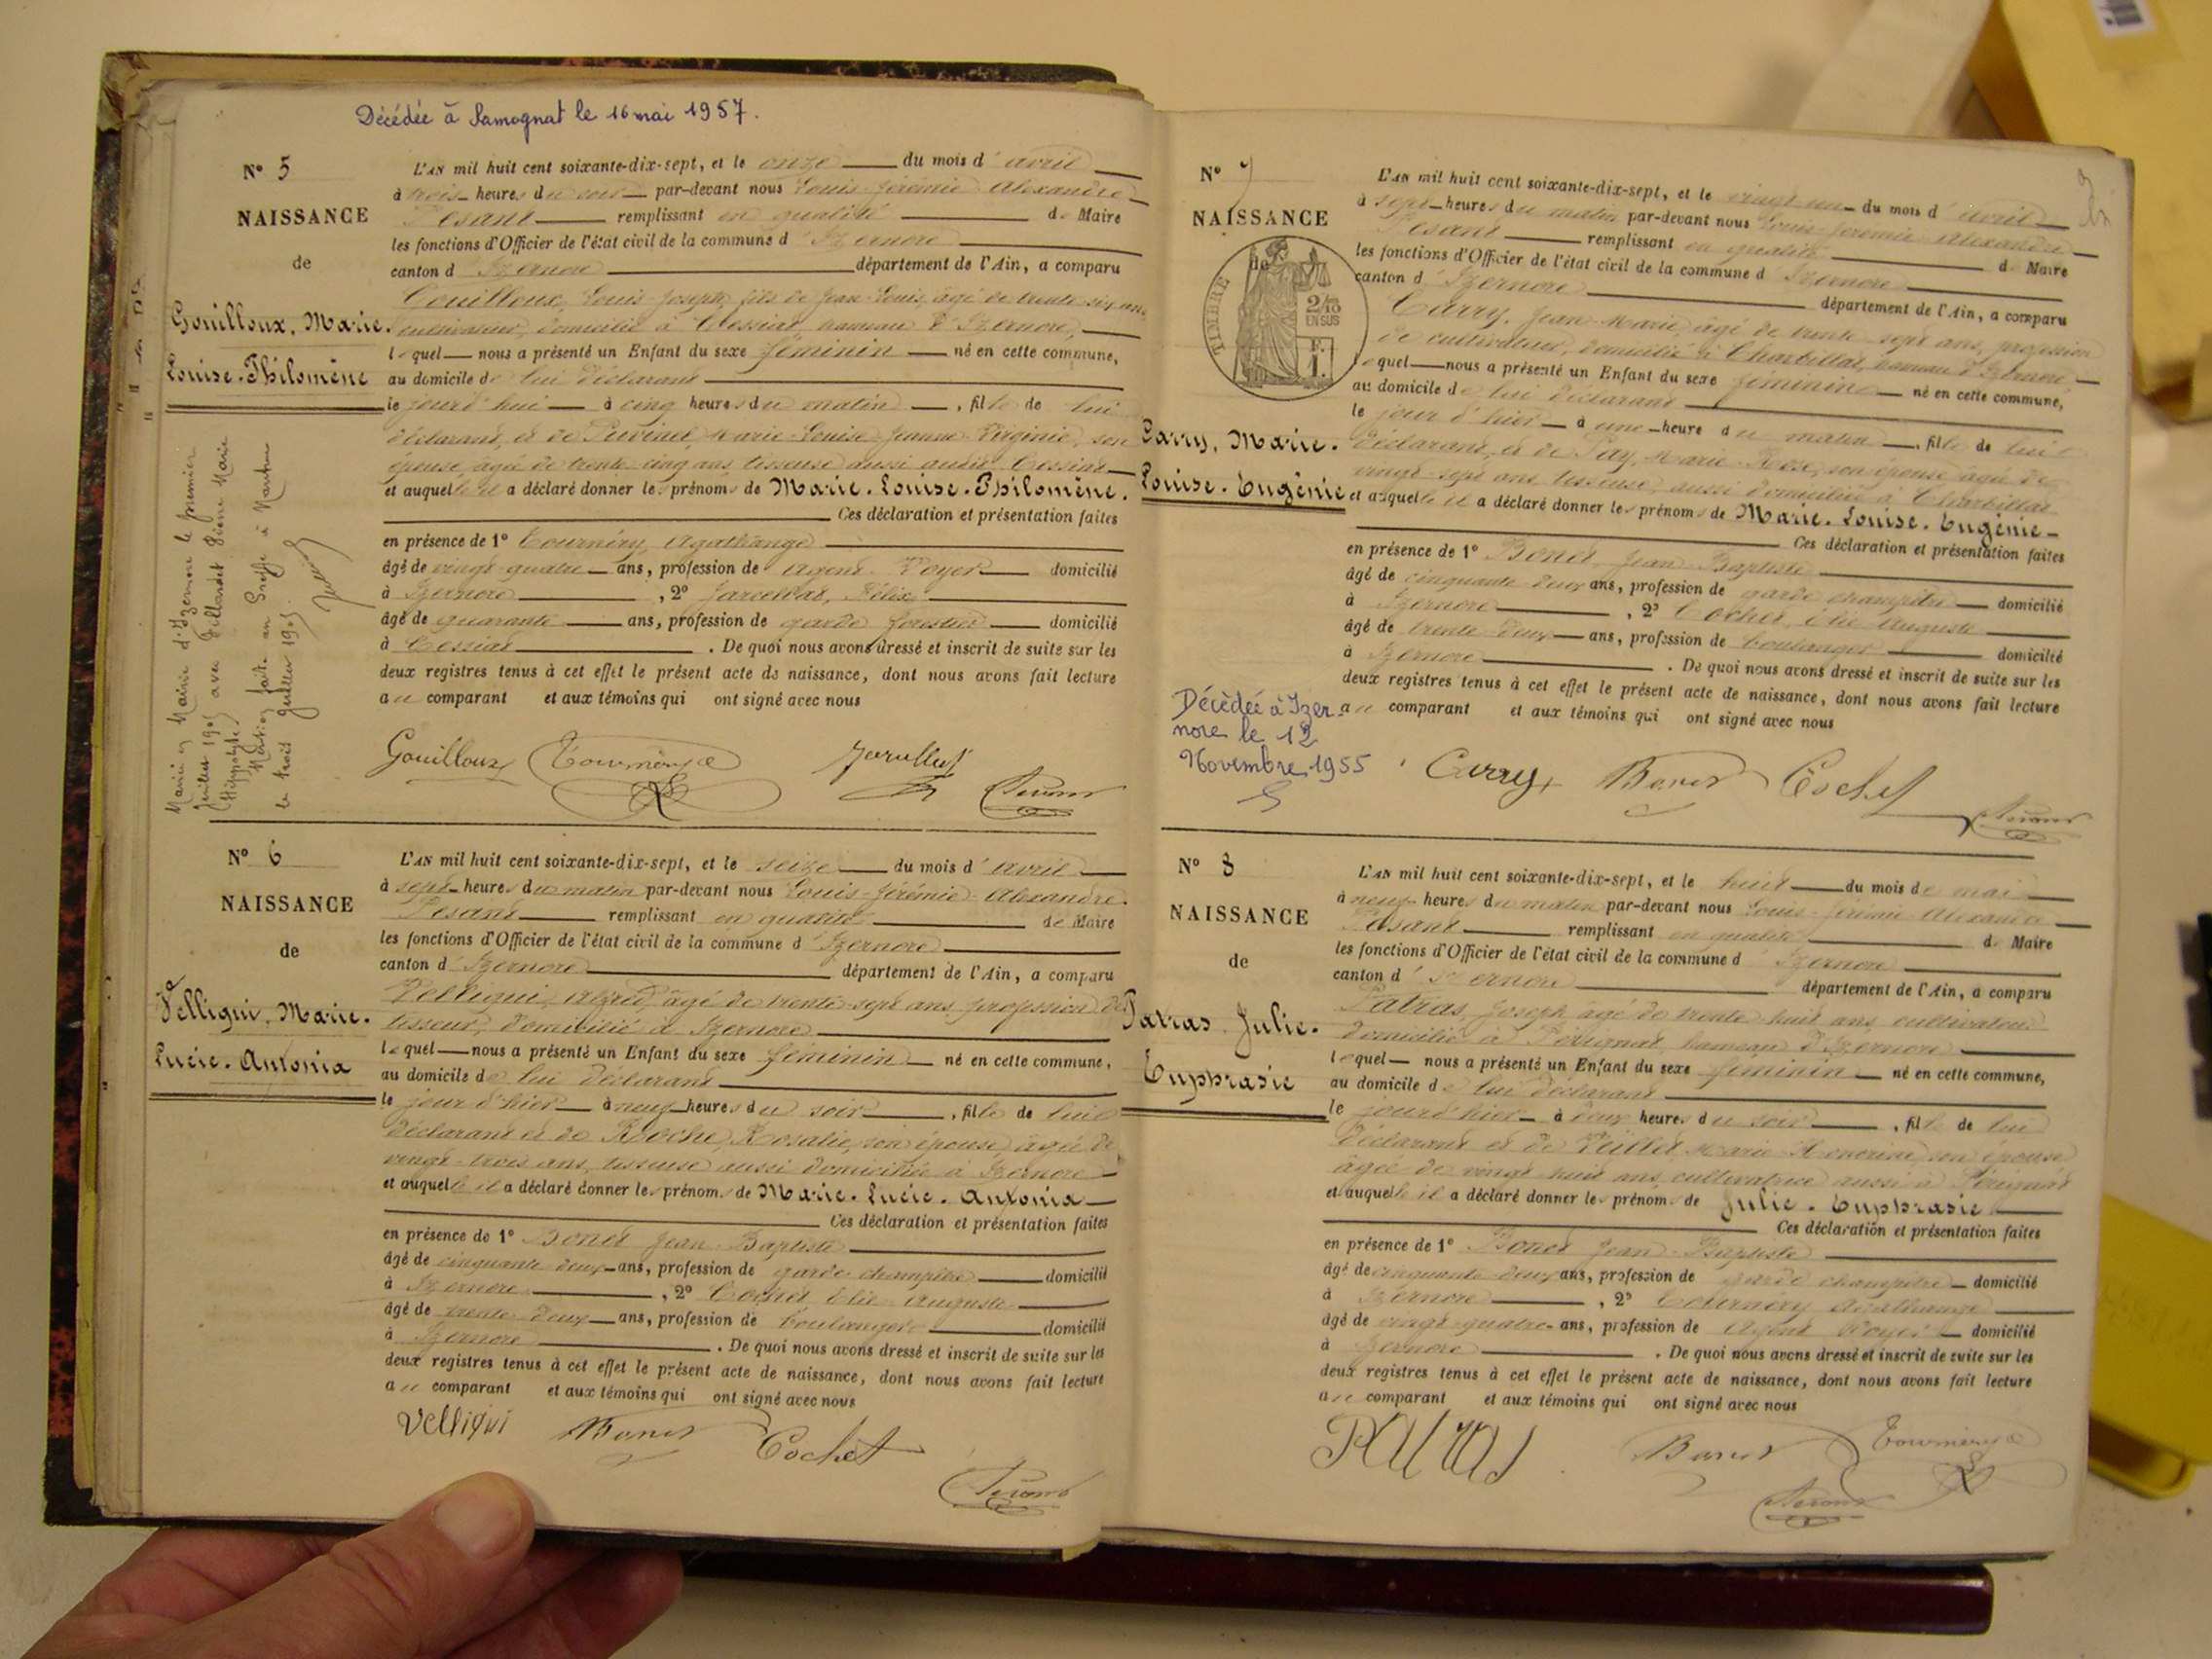 Décédée à Samognat le 16 mai 1957.
N° 5
NAISSANCE
de
Gouilloux, Marie.
Louise-Philomène
L'AN mil huit cent soixante-dix-sept, et le onze du mois d'avril
à trois heures du soir par-devant nous Louis-Jérémie-Alexandre
remplissant en qualité de Maire
les fonctions d'Officier de l'état civil de la commune d'Izernore
canton d'Izernore département de l'Ain, a comparu
Gouilloux, Louis-Joseph, fils de Jean-Louis, âgé de trente six ans
cultivateur, domicilié à Cessiat, hameau d'Izernore,
lequel nous a présenté un Enfant du sexe féminin né en cette commune,
au domicile de lui déclarant
le jourd'hui à cinq heures du matin, fille de lui
déclarant, et de Marie-Louise-Jeanne-Virginie, son
épouse, âgée de trente cinq ans tisseuse aussi audit Cessiat
et auquelle il a déclaré donner les prénoms de Marie-Louise-Philomène.
Ces déclaration et présentation faites
en présence de 1° Tournéry, Agathange
âgé de vingt quatre ans, profession de Agent-Voyer domicilié
à Izernore, 2° Félix
âgé de quarante ans, profession de garde forestier domicilié
à Cessiat. De quoi nous avons dressé et inscrit de suite sur les
deux registres tenus à cet effet le présent acte de naissance, dont nous avons fait lecture
au comparant et aux témoins qui ont signé avec nous
Gouilloux
Mariée Mairie d'Izernore le premier
Juillet 1905 avec Pierre Marie
Hippolyte
Mention faite au Greffe à Nantua
le trois Juillet 1905.
N° 6
NAISSANCE
de
Velliqui, Marie.
Lucie-Antonia
L'AN mil huit cent soixante-dix-sept, et le seize du mois d'avril
à sept heures du matin par-devant nous Louis-Jérémie-Alexandre
remplissant en qualité de Maire
les fonctions d'Officier de l'état civil de la commune d'Izernore
canton d'Izernore département de l'Ain, a comparu
Velliqui, Alfred, âgé de trente-sept ans, profession de
tisseur, domicilié à Izernore
lequel nous a présenté un Enfant du sexe féminin né en cette commune,
au domicile de lui déclarant
le jour d'hier à neuf heures du soir, fille de lui
déclarant et de Roche, Rosalie, son épouse, âgée de
vingt-trois ans, tisseuse aussi domiciliée à Izernore
et auquelle il a déclaré donner les prénoms de Marie-Lucie-Antonia
Ces déclaration et présentation faites
en présence de 1° Bonet Jean-Baptiste
âgé de cinquante deux ans, profession de garde champêtre domicilié
à Izernore, 2° Cochet Elie Auguste
âgé de trente deux ans, profession de boulanger domicilié
à Izernore. De quoi nous avons dressé et inscrit de suite sur les
deux registres tenus à cet effet le présent acte de naissance, dont nous avons fait lecture
au comparant et aux témoins qui ont signé avec nous
Velliqui Bonet Cochet
N° 7
NAISSANCE
de
TIMBRE
2/10
EN SUS
Carry, Marie.
Louise-Eugénie
Décédée à Izer-
nore le 12
Novembre 1955
L'AN mil huit cent soixante-dix-sept, et le vingt un du mois d'avril
à sept heures du matin par-devant nous Louis-Jérémie-Alexandre
remplissant en qualité de Maire
les fonctions d'Officier de l'état civil de la commune d'Izernore
canton d'Izernore département de l'Ain, a comparu
Carry, Jean-Marie, âgé de trente-sept ans, profession
de cultivateur, domicilié à Charbillat, hameau d'Izernore,
lequel nous a présenté un Enfant du sexe féminin né en cette commune,
au domicile de lui déclarant
le jour d'hier à une heure du matin, fille de lui
déclarant, et de Marie-Rose, son épouse âgée de
vingt-sept ans, tisseuse, aussi domiciliée à Charbillat
et auquelle il a déclaré donner les prénoms de Marie-Louise-Eugénie
Ces déclaration et présentation faites
en présence de 1° Bonet, Jean-Baptiste
âgé de cinquante deux ans, profession de garde champêtre domicilié
à Izernore, 2° Cochet, Elie Auguste
âgé de trente deux ans, profession de boulanger domicilié
à Izernore. De quoi nous avons dressé et inscrit de suite sur les
deux registres tenus à cet effet le présent acte de naissance, dont nous avons fait lecture
au comparant et aux témoins qui ont signé avec nous
Carry Bonet Cochet
N° 8
NAISSANCE
de
Patras Julie-
Euphrasie
L'AN mil huit cent soixante-dix-sept, et le huit du mois de mai
à neuf heures du matin par-devant nous Louis-Jérémie-Alexandre
remplissant en qualité de Maire
les fonctions d'Officier de l'état civil de la commune d'Izernore
canton d'Izernore département de l'Ain, a comparu
Patras, Joseph âgé de trente-huit ans cultivateur
domicilié à Pérignat, hameau d'Izernore
lequel nous a présenté un Enfant du sexe féminin né en cette commune,
au domicile de lui déclarant
le jour d'hier à deux heures du soir, fille de lui
déclarant et de Marie son épouse
âgée de vingt huit ans, cultivatrice aussi à Pérignat
et auquelle il a déclaré donner les prénoms de Julie-Euphrasie
Ces déclaration et présentation faites
en présence de 1° Bonet Jean-Baptiste
âgé de cinquante-deux ans, profession de garde champêtre domicilié
à Izernore, 2° Tournéry Agathange
âgé de vingt-quatre ans, profession de Agent Voyer domicilié
à Izernore. De quoi nous avons dressé et inscrit de suite sur les
deux registres tenus à cet effet le présent acte de naissance, dont nous avons fait lecture
au comparant et aux témoins qui ont signé avec nous
Patras Bonet